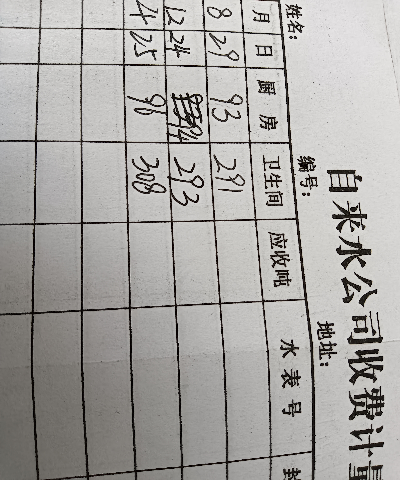 自来水公司收费计量
姓名： 编号： 地址：
月 日 厨房 卫生间 应收吨 水表号
8 29 93 291
12 24 94 293
4 25 96 308